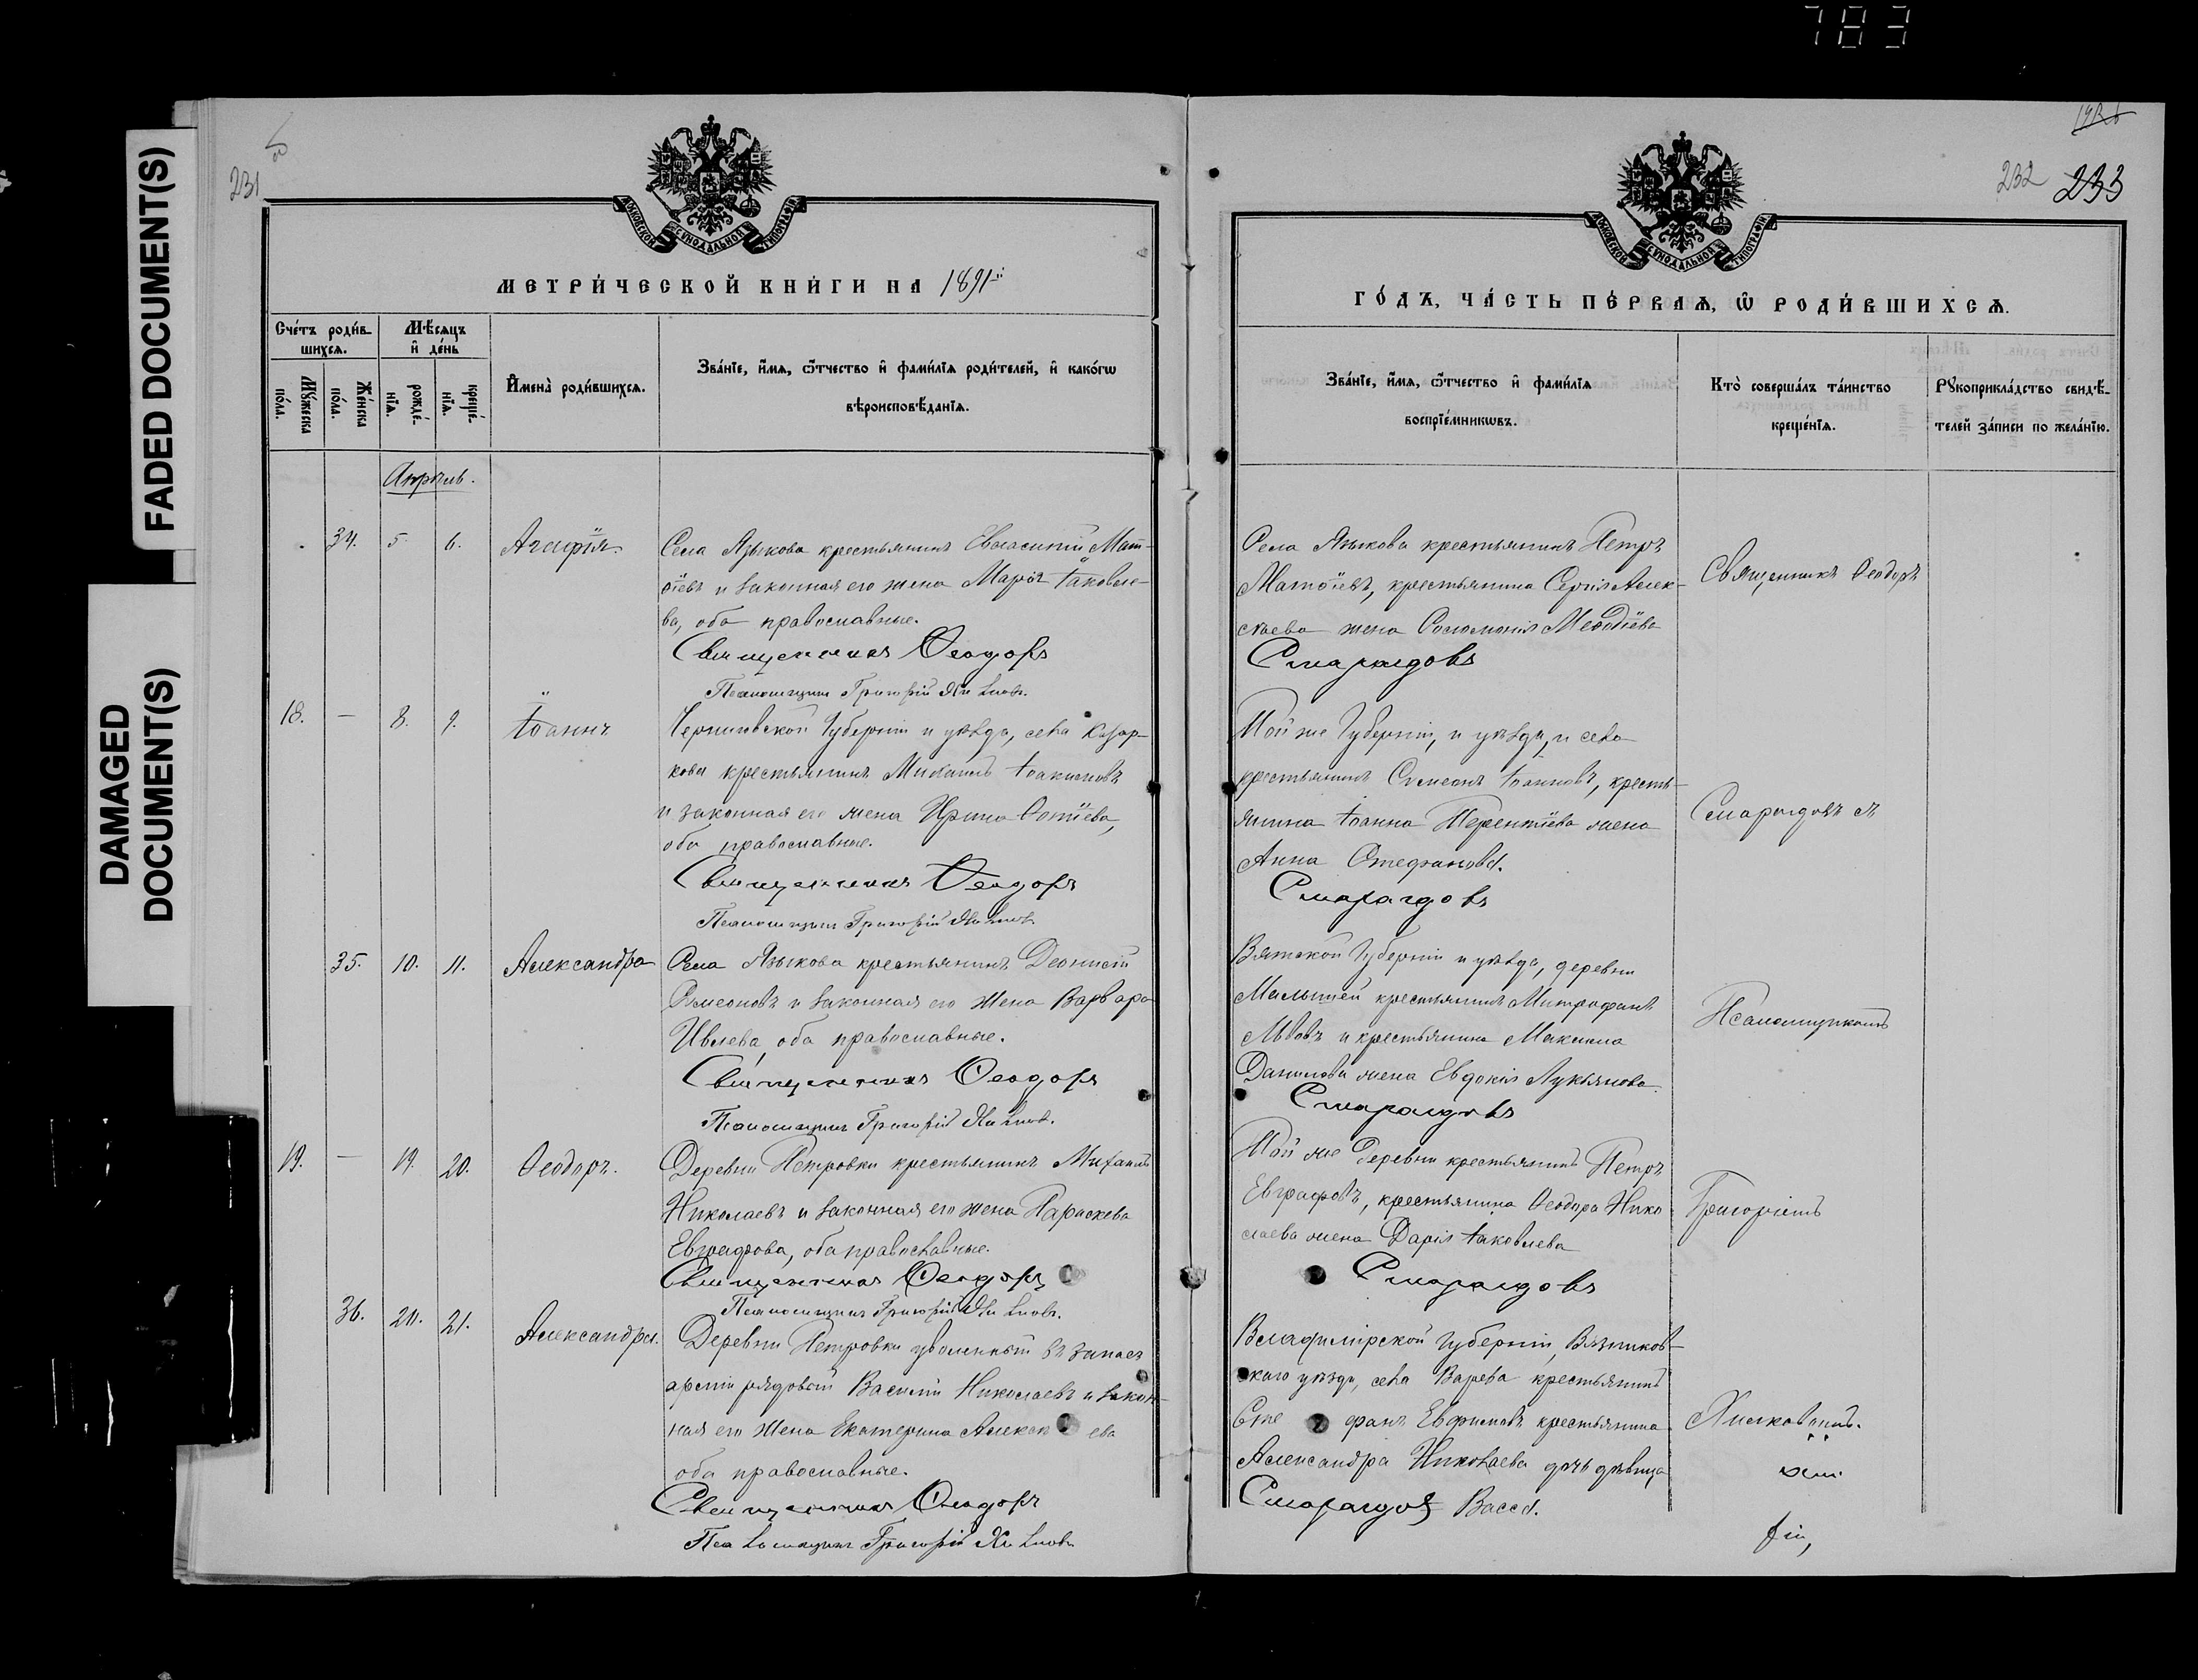 783
FADED DOCUMENT(S)
DAMAGED
DOCUMENT(S)
231
232 233
МОСКОВСКОЙ СѴНОДАЛЬНОЙ ТИПОГРАФІИ
МЕТРИ́ЧЕСКОЙ КНИ́ГИ НА 1891й
Сче́тъ роди́в-
шихся.
Мѣ́сяцъ
и҆ де́нь
Мꙋ́жеска
по́ла.
Же́нска
по́ла.
рожде́-
нїя.
креще́-
нїя.
И҆мена̀ роди́вшихся.
Зва́нїе, и҆́мя, ѻ҆́тчество и҆ фами́лїя роди́телей, и҆ како́гѡ
вѣроисповѣ́данїя.
Апрѣль.
34. 5. 6. Агафія.
Села Языкова крестьянинъ Евласипій Мат-
ѳіевъ и законная его жена Марія Іаковле-
ва, оба православные.
Священникъ Ѳеодоръ
Псаломщикъ Григорій
18. — 8. 9. Іоаннъ
Черниговской Губерніи и уѣзда, села
крестьянинъ Михаилъ Іоакимовъ
и законная его жена Ирина Фотіева,
оба православные.
Священникъ Ѳеодоръ
Псаломщикъ Григорій
35. 10. 11. Александра
Села Языкова крестьянинъ Деонисій
Симеоновъ и законная его жена Варвара
Ивлева, оба православные.
Священникъ Ѳеодоръ
Псаломщикъ Григорій
19. — 19. 20. Ѳеодоръ.
Деревни Петровки крестьянинъ Михаилъ
Николаевъ и законная его жена Параскева
Евграфова, оба православные.
Священникъ Ѳеодоръ
Псаломщикъ Григорій
36. 20. 21. Александра.
Деревни Петровки уволенный въ запасъ
арміи рядовой Василій Николаевъ и закон-
ная его жена Екатерина Алекс ева
оба православные.
Священникъ Ѳеодоръ
Псаломщикъ Григорій
МОСКОВСКОЙ СѴНОДАЛЬНОЙ ТИПОГРАФІИ
ГО́ДЪ, ЧА́СТЬ ПЕ́РВАЯ, Ѡ҆ РОДИ́ВШИХСЯ.
Зва́нїе, и҆́мя, ѻ҆́тчество и҆ фами́лїя
воспрїе́мникѡвъ.
Кто̀ соверша́лъ та́инство
креще́нїя.
Рꙋкоприкла́дство свидѣ́-
телей за́писи по жела́нїю.
Села Языкова крестьянинъ Петръ
Матѳіевъ, крестьянина Сергія Алек-
сѣева жена Соломонія Меѳодіева
Смарагдовъ
Той же Губерніи, и уѣзда, и села
крестьянинъ Симеонъ Іоанновъ, кресть-
янина Іоанна Терентіева жена
Анна Стефанова.
Смарагдовъ
Вятской Губерніи и уѣзда, деревни
крестьянинъ Митрофанъ
Львовъ и крестьянина Максима
Данилова жена Евдокія Лукьянова.
Смарагдовъ
Той же деревни крестьянинъ Петръ
Евграфовъ, крестьянина Ѳеодора Нико
лаева жена Дарія Іаковлева
Смарагдовъ
Владимірской Губерніи, Вязников-
скаго уѣзда, села Варева крестьянинъ
Сте фанъ Евфимовъ крестьянина
Александра Николаева дочь дѣвица
Смарагдовъ Васса.
Священникъ Ѳеодоръ
Смарагдовъ съ
Псаломщикомъ
Григоріемъ